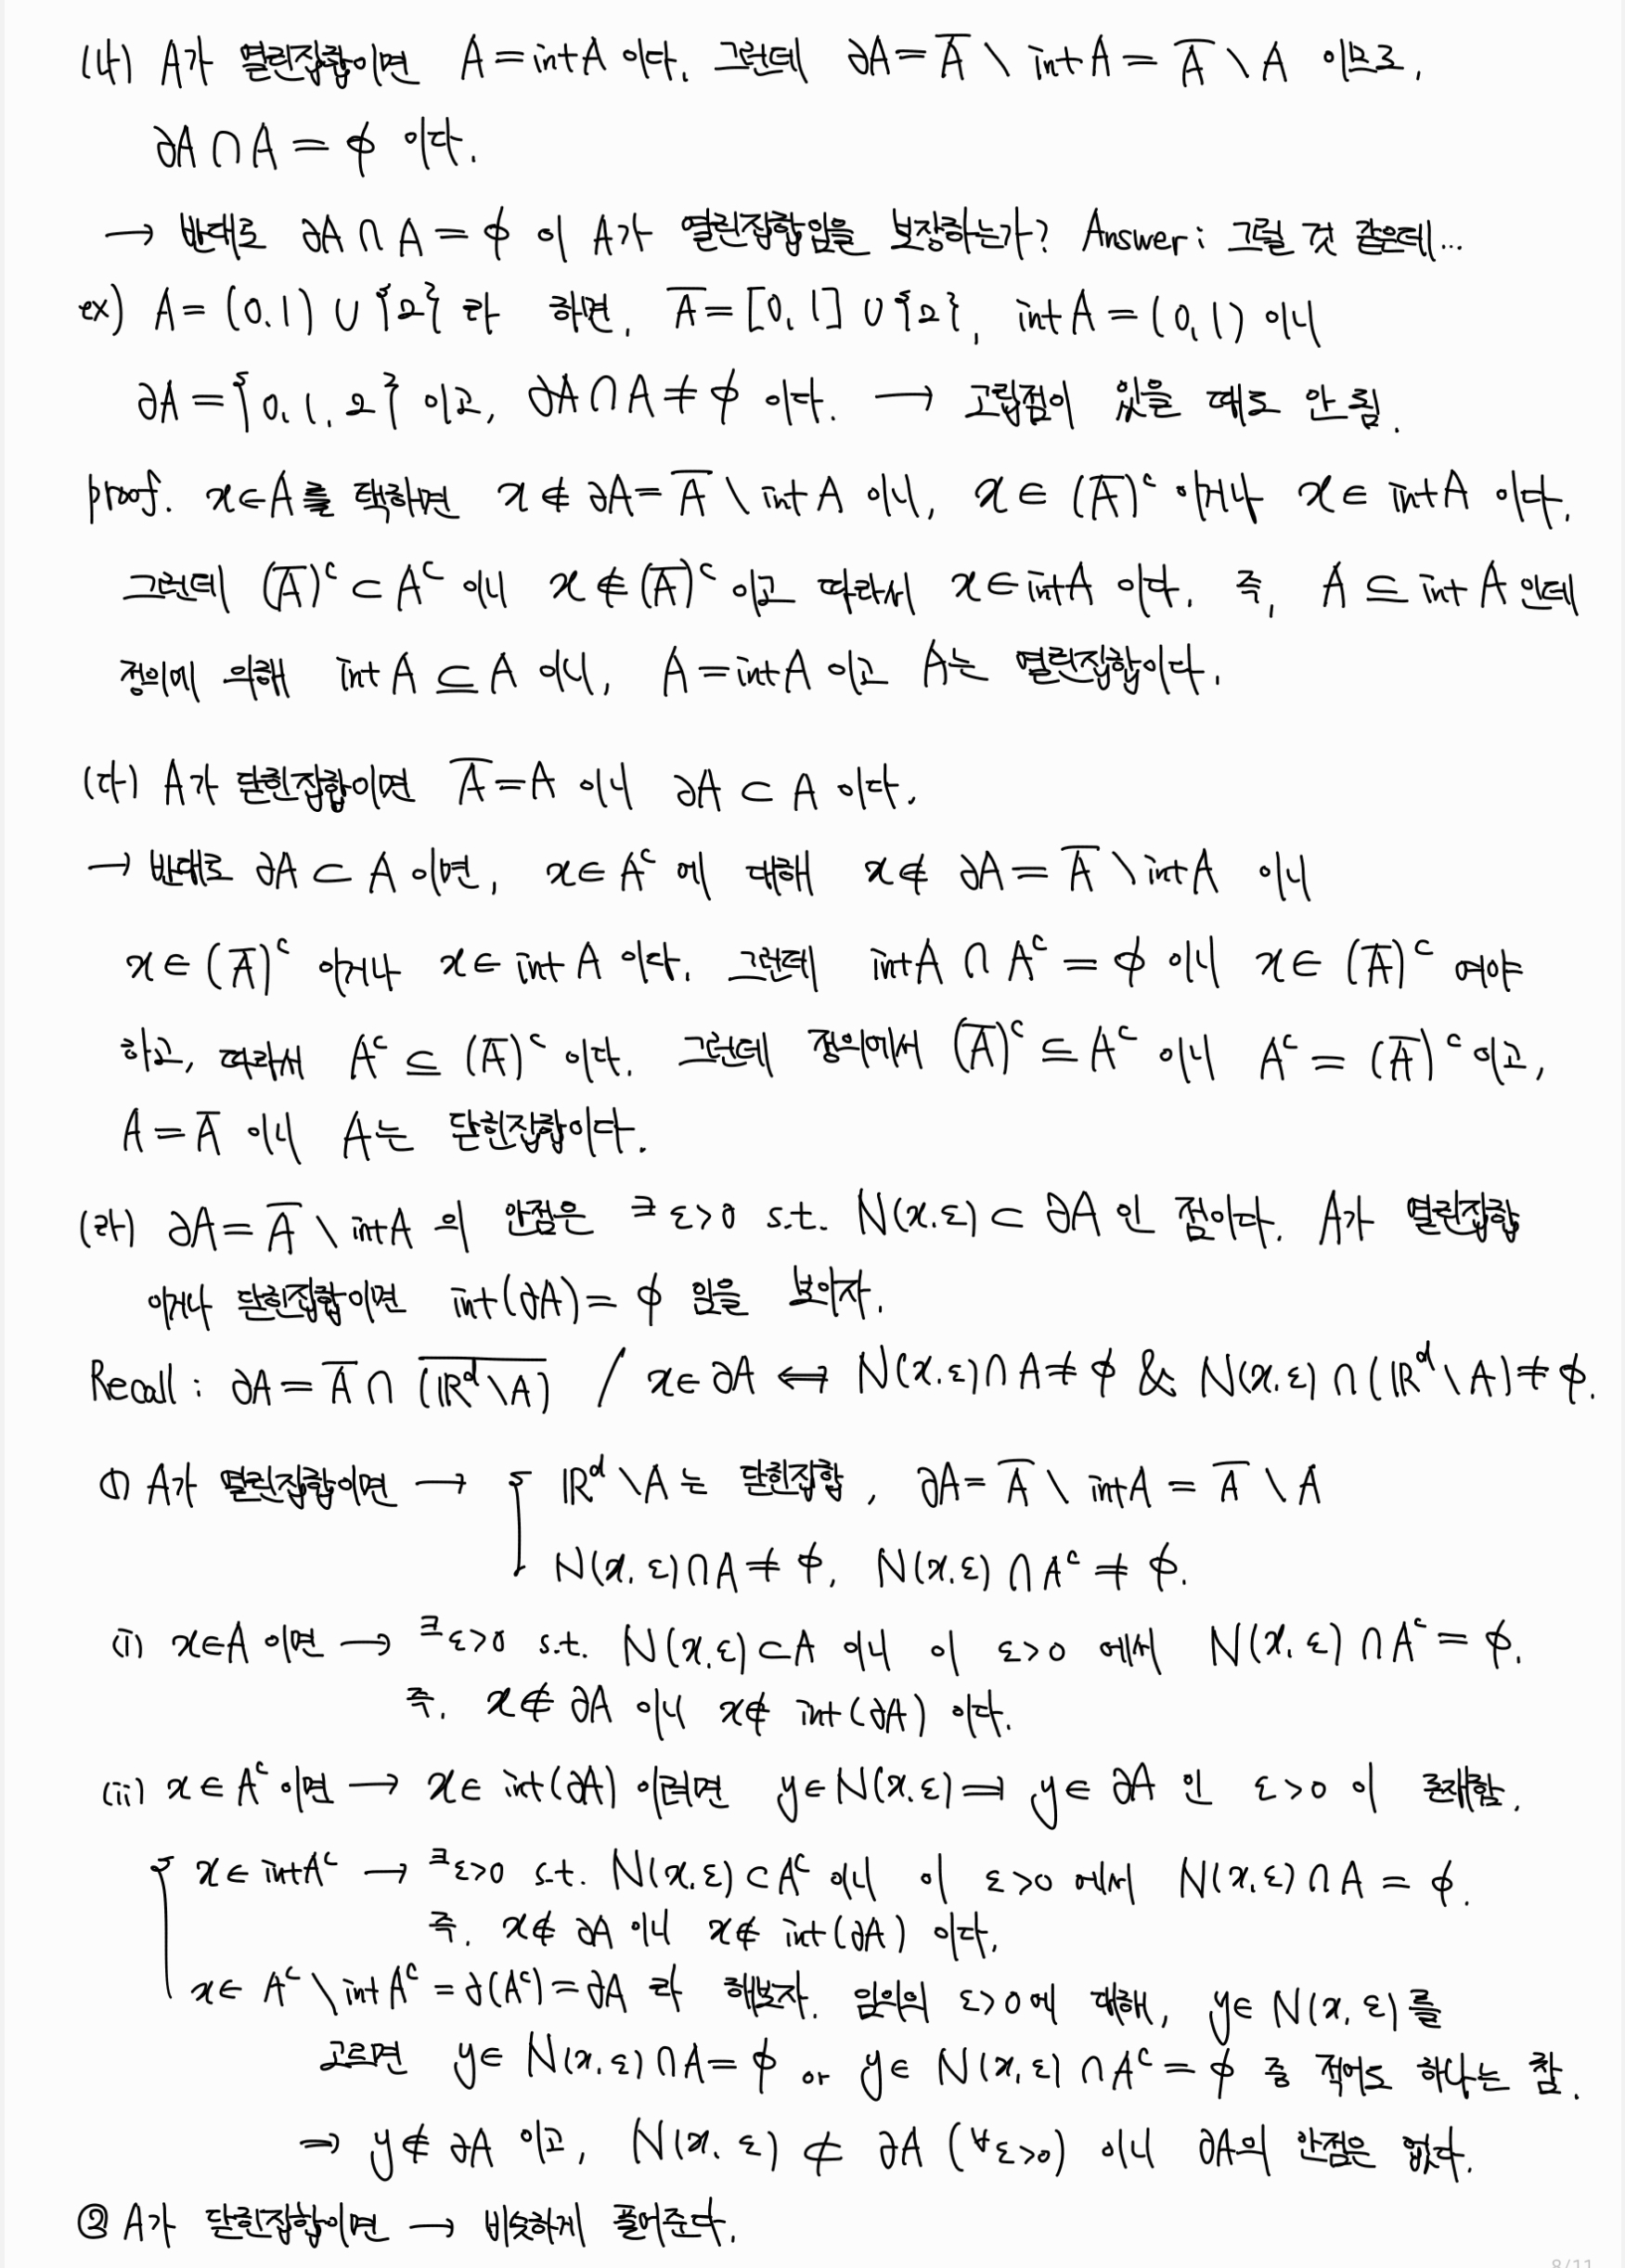 (나) A가 열린집합이면 A = int A 이다. 그런데 ∂A = A̅ \ int A = A̅ \ A 이므로,
∂A ∩ A = ϕ 이다.
→ 반대로 ∂A ∩ A = ϕ 이 A가 열린집합임을 보장하는가? Answer : 그럴 것 같은데...
ex) A = (0, 1) ∪ {2} 라 하면, A̅ = [0, 1] ∪ {2}, int A = (0, 1) 이니
∂A = {0, 1, 2} 이고, ∂A ∩ A ≠ ϕ 이다. → 고립점이 있을 때도 안 됨.
proof. x ∈ A를 택하면 x ∉ ∂A = A̅ \ int A 이니, x ∈ (A̅)ᶜ 이거나 x ∈ int A 이다.
그런데 (A̅)ᶜ ⊂ Aᶜ 이니 x ∉ (A̅)ᶜ 이고 따라서 x ∈ int A 이다. 즉, A ⊆ int A 인데
정의에 의해 int A ⊆ A 이니, A = int A 이고 A는 열린집합이다.
(다) A가 닫힌집합이면 A̅ = A 이니 ∂A ⊂ A 이다.
→ 반대로 ∂A ⊂ A 이면, x ∈ Aᶜ 에 대해 x ∉ ∂A = A̅ \ int A 이니
x ∈ (A̅)ᶜ 이거나 x ∈ int A 이다. 그런데 int A ∩ Aᶜ = ϕ 이니 x ∈ (A̅)ᶜ 여야
하고, 따라서 Aᶜ ⊆ (A̅)ᶜ 이다. 그런데 정의에서 (A̅)ᶜ ⊆ Aᶜ 이니 Aᶜ = (A̅)ᶜ 이고,
A = A̅ 이니 A는 닫힌집합이다.
(라) ∂A = A̅ \ int A 의 안점은 ∃ε>0 s.t. N(x, ε) ⊂ ∂A 인 점이다. A가 열린집합
이거나 닫힌집합이면 int(∂A) = ϕ 임을 보이자.
Recall : ∂A = A̅ ∩ \overline{(ℝᵈ \ A)} / x ∈ ∂A ⟺ N(x, ε) ∩ A ≠ ϕ & N(x, ε) ∩ (ℝᵈ \ A) ≠ ϕ.
① A가 열린집합이면 → { ℝᵈ \ A 는 닫힌집합, ∂A = A̅ \ int A = A̅ \ A
N(x, ε) ∩ A ≠ ϕ, N(x, ε) ∩ Aᶜ ≠ ϕ.
(i) x ∈ A 이면 → ∃ε>0 s.t. N(x, ε) ⊂ A 이니 이 ε>0 에서 N(x, ε) ∩ Aᶜ = ϕ.
즉, x ∉ ∂A 이니 x ∉ int(∂A) 이다.
(ii) x ∈ Aᶜ 이면 → x ∈ int(∂A) 이려면 y ∈ N(x, ε) ⟹ y ∈ ∂A 인 ε>0 이 존재함.
{ x ∈ int Aᶜ → ∃ε>0 s.t. N(x, ε) ⊂ Aᶜ 이니 이 ε>0 에서 N(x, ε) ∩ A = ϕ.
즉, x ∉ ∂A 이니 x ∉ int(∂A) 이다.
x ∈ Aᶜ \ int Aᶜ = ∂(Aᶜ) = ∂A 라 해보자. 임의의 ε>0에 대해, y ∈ N(x, ε)를
고르면 y ∈ N(x, ε) ∩ A = ϕ or y ∈ N(x, ε) ∩ Aᶜ = ϕ 중 적어도 하나는 참.
→ y ∉ ∂A 이고, N(x, ε) ⊄ ∂A (∀ε>0) 이니 ∂A의 안점은 없다.
② A가 닫힌집합이면 → 비슷하게 풀어준다.
8/11